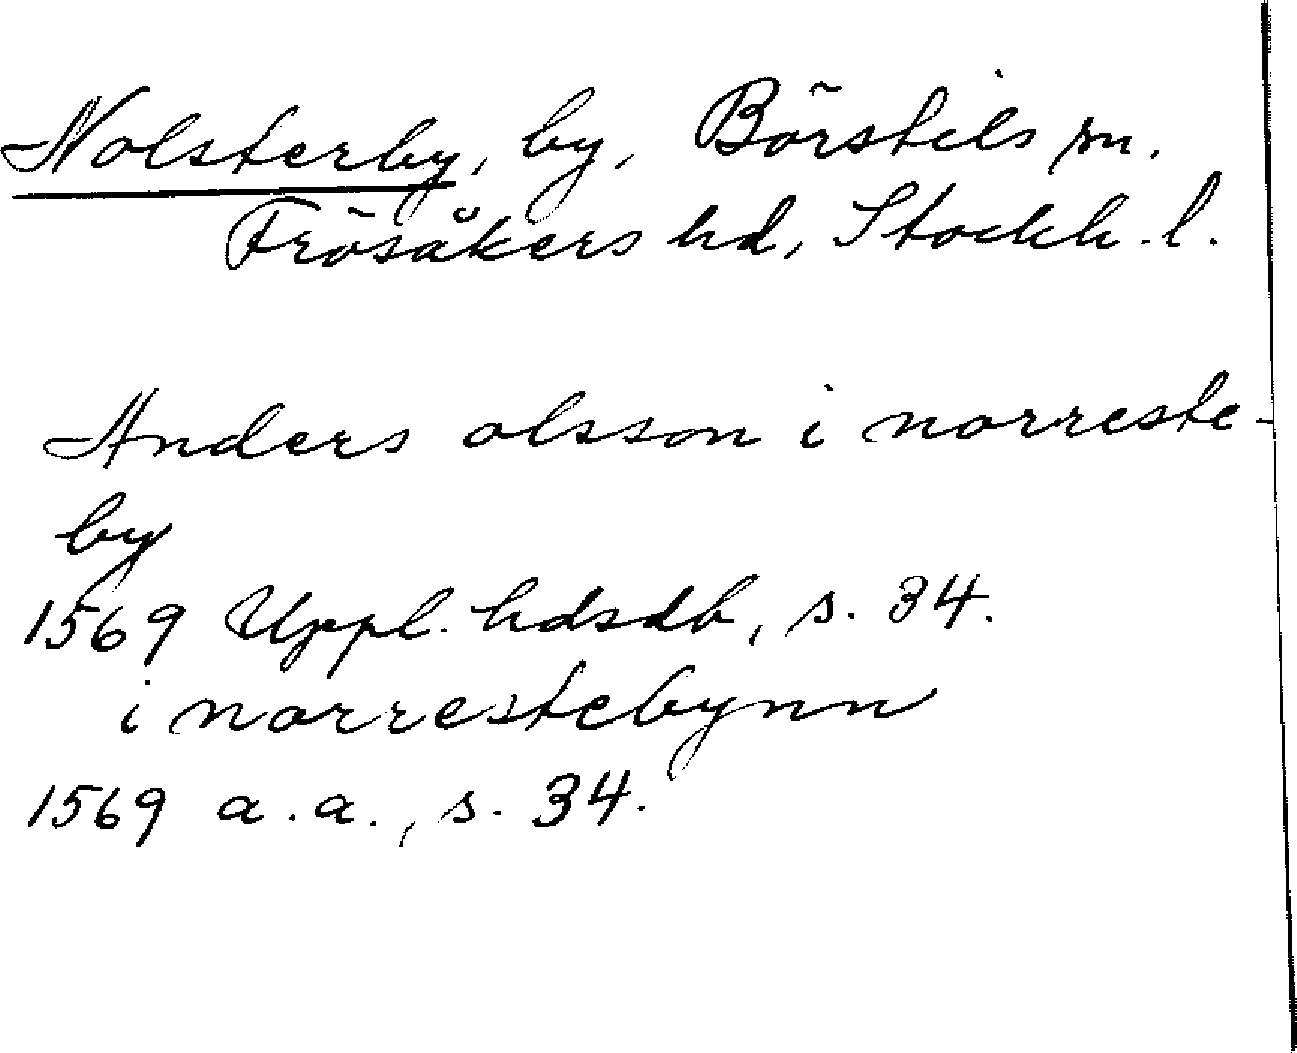 Nolsterby, by, Börstils sn.
Frösåkers hd, Stockh. l.
Anders olsson i norreste-
by
1569 Uppl. hdsdb, s. 34.
i norrestebynn
1569 a.a., s. 34.